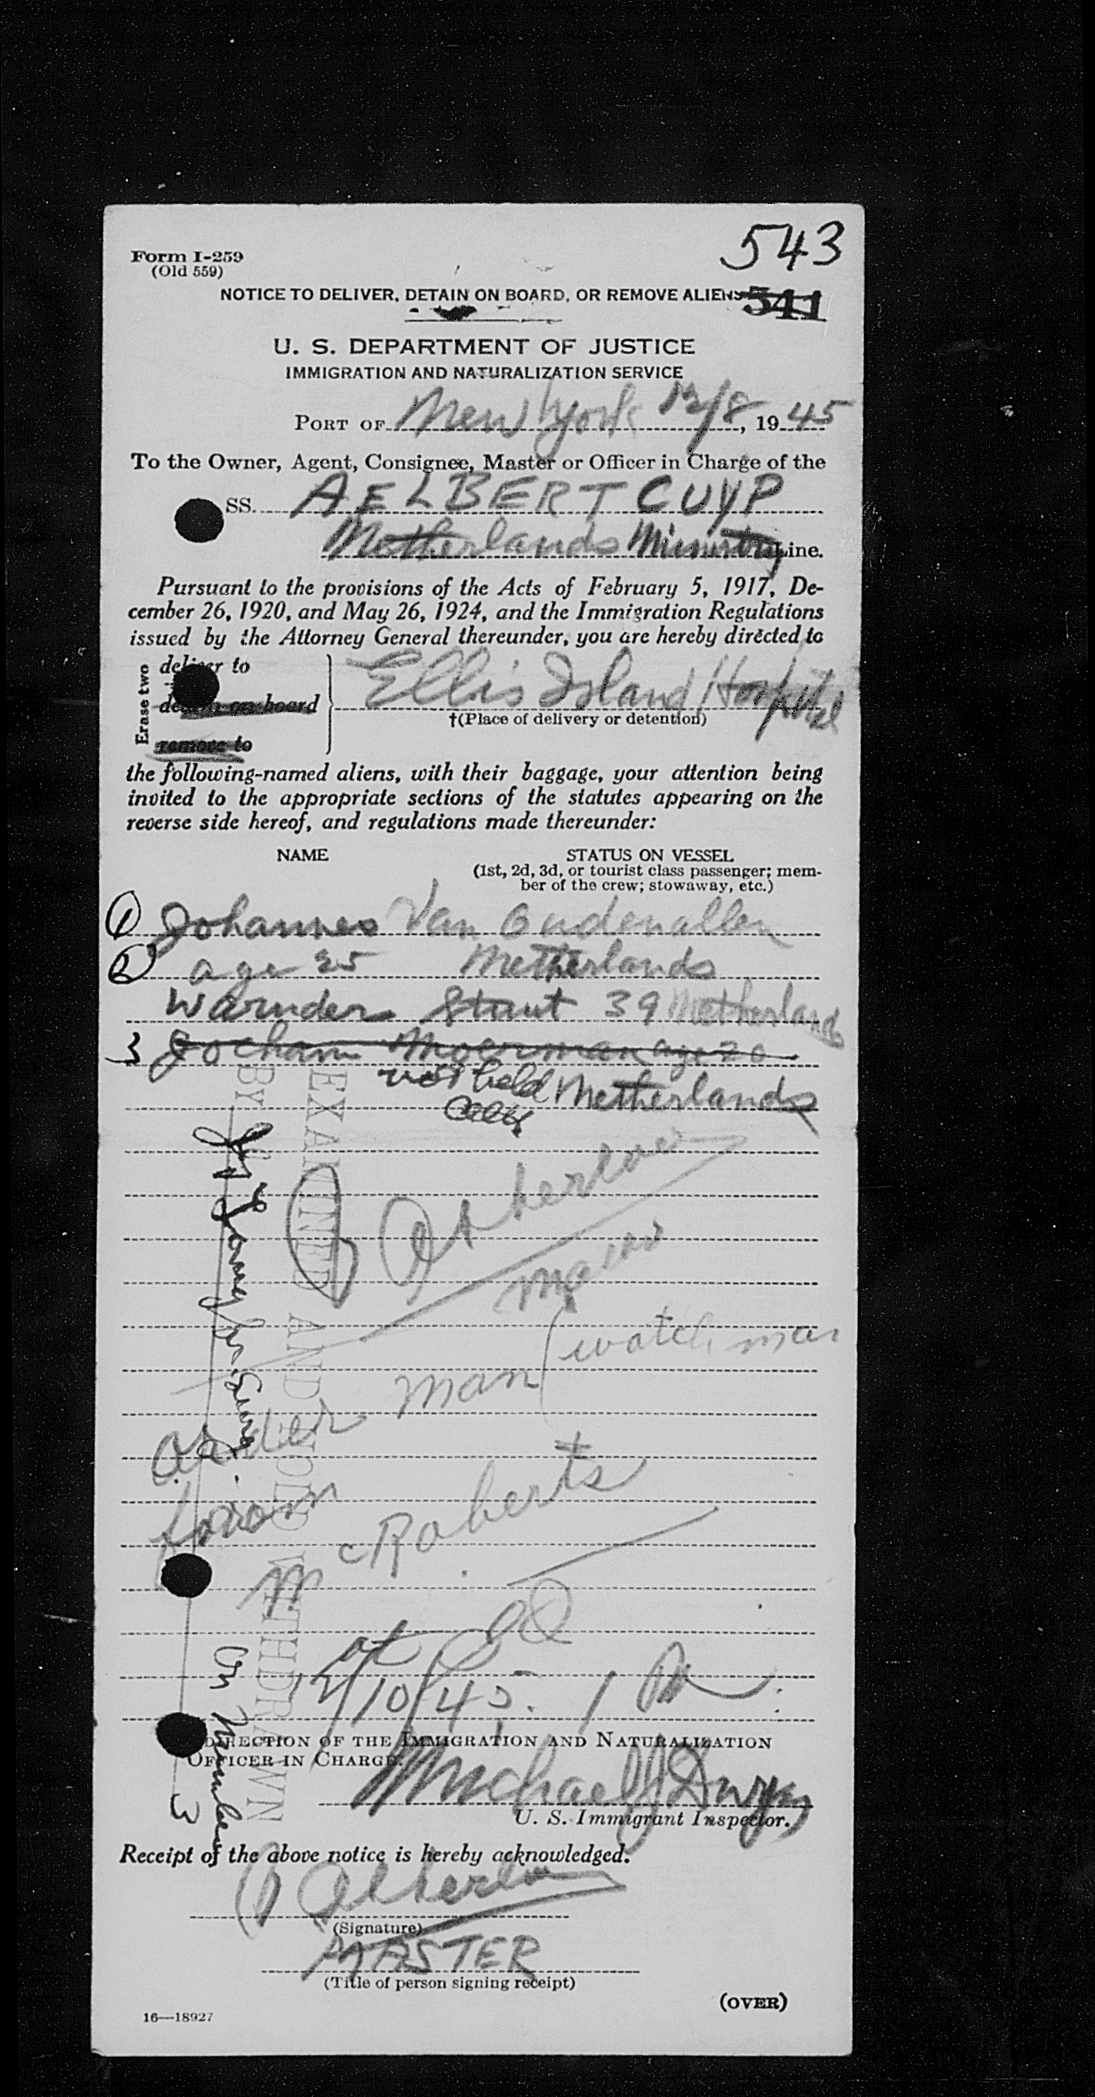 543
Form I-259
(Old 559)
NOTICE TO DELIVER, DETAIN ON BOARD, OR REMOVE ALIENS
541
U. S. DEPARTMENT OF JUSTICE
IMMIGRATION AND NATURALIZATION SERVICE
PORT OF New York 12/8, 1945
To the Owner, Agent, Consignee, Master or Officer in Charge of the
SS. AELBERT CUYP
Netherlands Ministry Line.
Pursuant to the provisions of the Acts of February 5, 1917, De-
cember 26, 1920, and May 26, 1924, and the Immigration Regulations
issued by the Attorney General thereunder, you are hereby directed to
Erase two
deliver to
detain on board
remove to
Ellis Island Hospital
†(Place of delivery or detention)
the following-named aliens, with their baggage, your attention being
invited to the appropriate sections of the statutes appearing on the
reverse side hereof, and regulations made thereunder:
NAME
STATUS ON VESSEL
(1st, 2d, 3d, or tourist class passenger; mem-
ber of the crew; stowaway, etc.)
1 Johannes Van Oudenallen
2 age 25 Netherlands
Warnder Struut 39 Netherlands
3 Jocham Moerman age 20
not held Netherlands
EXAMINED AND HOLD WITHDRAWN
BY
man (watch man
from
McRoberts
at
12/10/45. 1 PM
DIRECTION OF THE IMMIGRATION AND NATURALIZATION
OFFICER IN CHARGE.
Michael J Dwyer
U. S. Immigrant Inspector.
on Number 3
Receipt of the above notice is hereby acknowledged.
(Signature)
MASTER
(Title of person signing receipt)
(OVER)
16—18927